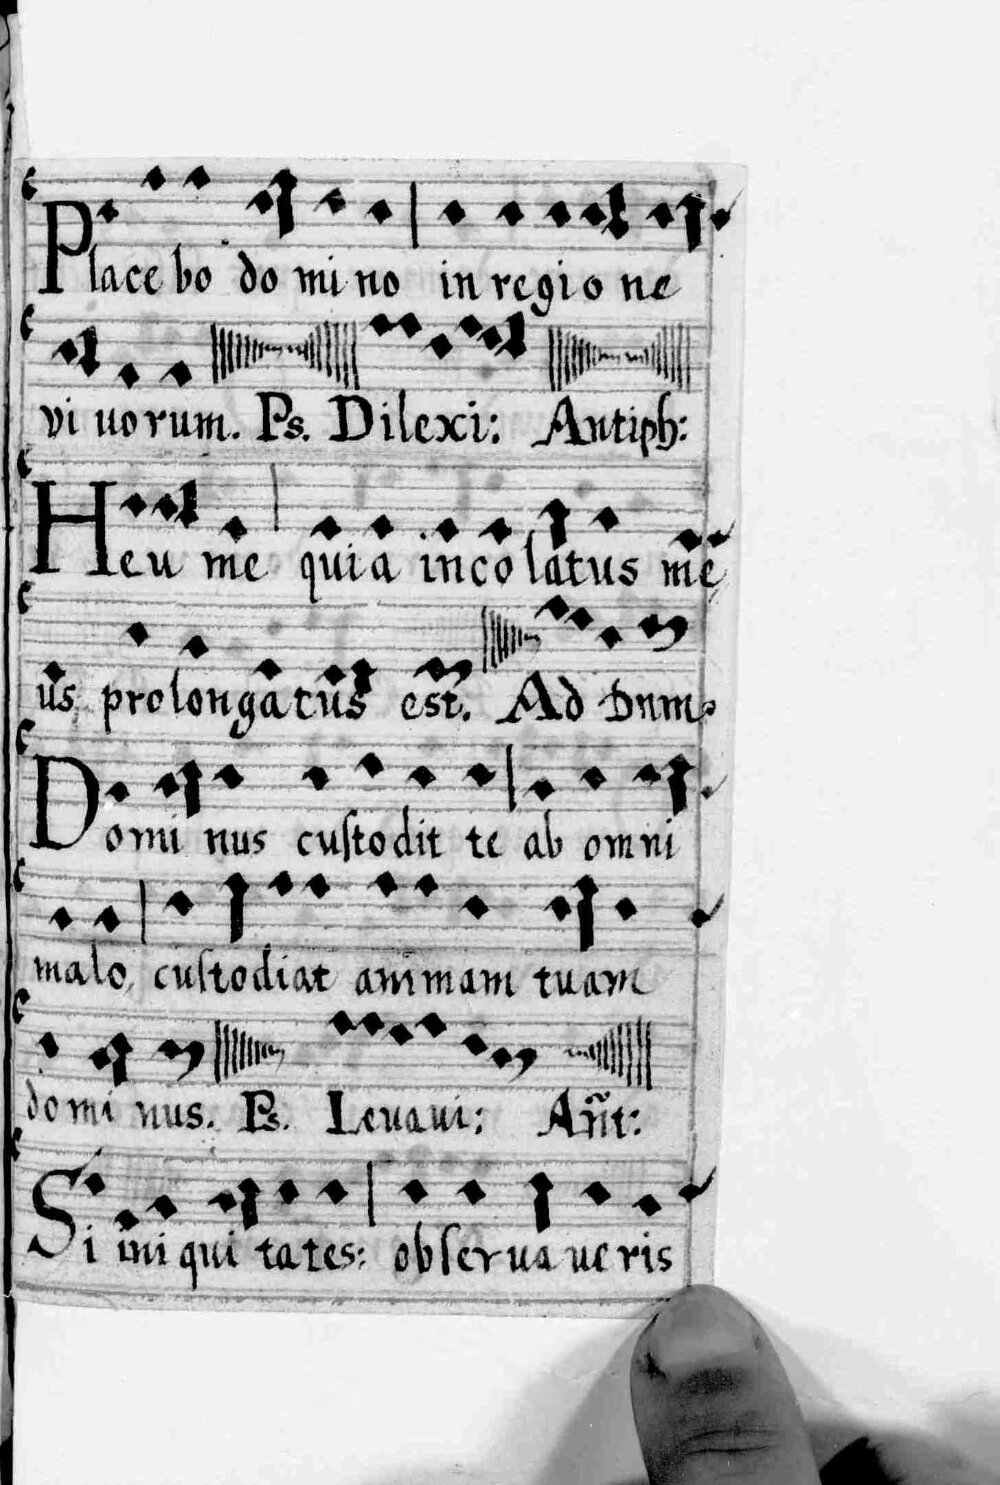 Placebo domino in regione
vi uorum. Ps. Dilexi: Antiph:
Heu me quia incolatus me
us prolongatus est. Ad Dnm.
Dominus cuſtodit te ab omni
malo, cuſtodiat animam tuam
dominus. Ps. Leuaui: Añt:
Si iniquitates: obſerua ueris